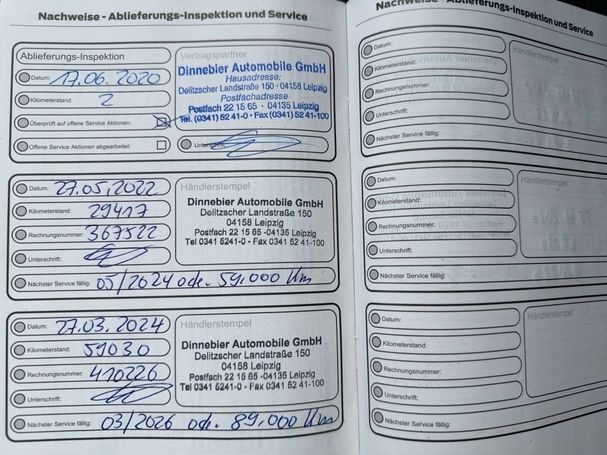 Nachweise - Ablieferungs-Inspektion und Service
Ablieferungs-Inspektion
Datum: 17.06.2020
Kilometerstand: 2
Überprüft auf offene Service Aktionen:
Offene Service Aktionen abgearbeitet:
Vertragspartner
Dinnebier Automobile GmbH
Hausadresse:
Delitzscher Landstraße 150 · 04158 Leipzig
Postfachadresse
Postfach 22 15 65 · 04135 Leipzig
Tel. (0341) 52 41-0 · Fax (0341) 52 41-100
Datum: 27.05.2022
Kilometerstand: 29417
Rechnungsnummer: 367522
Unterschrift:
Händlerstempel
Dinnebier Automobile GmbH
Delitzscher Landstraße 150
04158 Leipzig
Postfach 22 15 65 -04135 Leipzig
Tel 0341 5241-0 - Fax 0341 52 41-100
Nächster Service fällig: 05/2024 od. 59.000 Km
Datum: 27.03.2024
Kilometerstand: 59030
Rechnungsnummer: 410226
Unterschrift:
Händlerstempel
Dinnebier Automobile GmbH
Delitzscher Landstraße 150
04158 Leipzig
Postfach 22 15 65 -04135 Leipzig
Tel 0341 5241-0 - Fax 0341 52 41-100
Nächster Service fällig: 03/2026 od. 89.000 Km
Nachweise - Ablieferungs-Inspektion und Service
Datum:
Kilometerstand:
Rechnungsnummer:
Unterschrift:
Händlerstempel
Nächster Service fällig:
Datum:
Kilometerstand:
Rechnungsnummer:
Unterschrift:
Händlerstempel
Nächster Service fällig:
Datum:
Kilometerstand:
Rechnungsnummer:
Unterschrift:
Händlerstempel
Nächster Service fällig: